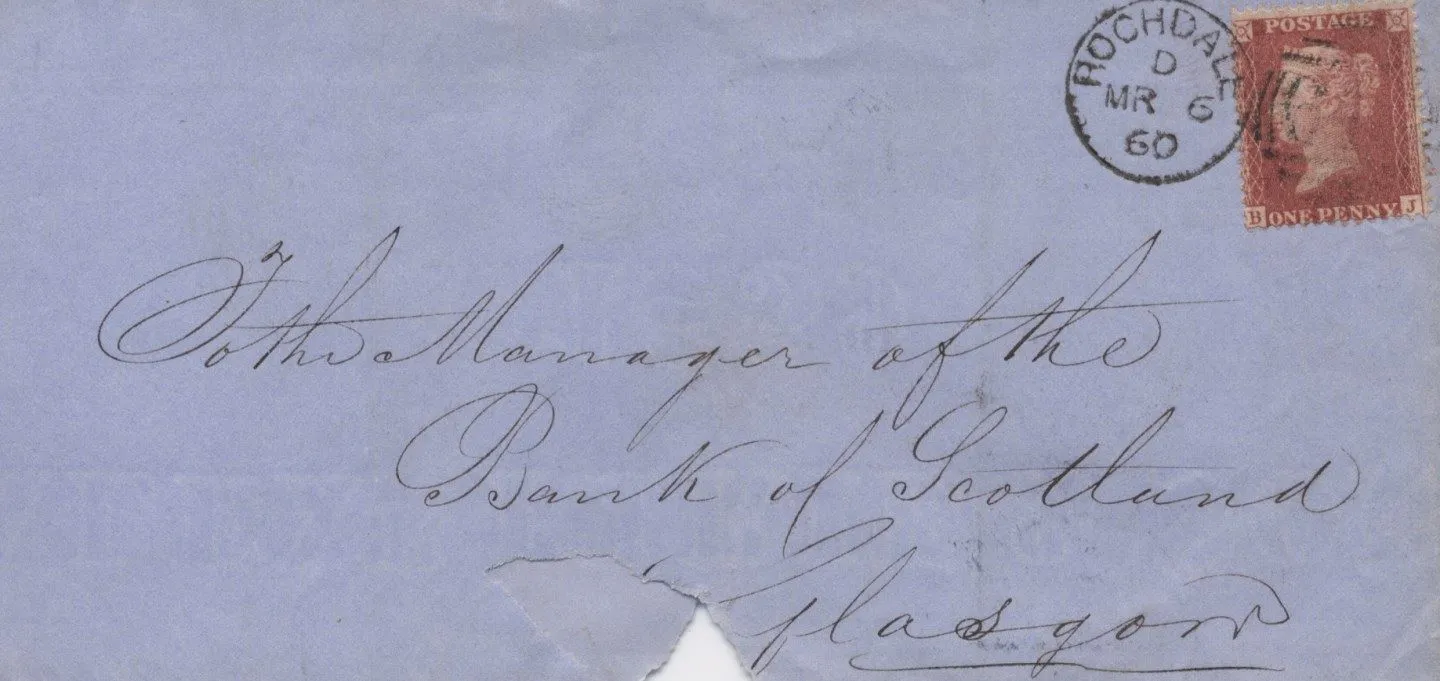 ROCHDALE
D
MR 6
60
POSTAGE
B ONE PENNY J
To the Manager of the
Bank of Scotland
Glasgow